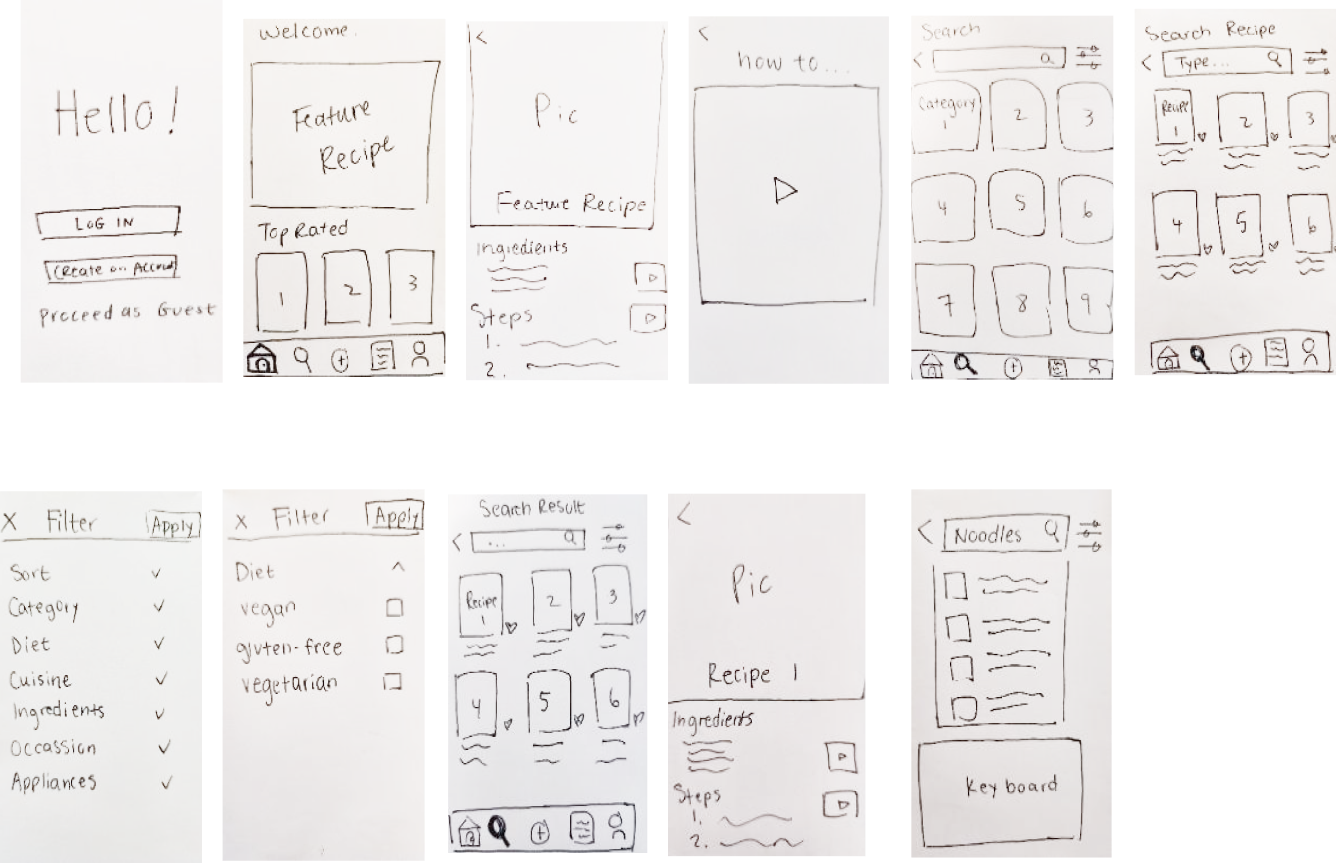 Hello!
LOG IN
Create an Account
Proceed as Guest
Welcome.
Feature
Recipe
Top Rated
1 2 3
<
Pic
Feature Recipe
Ingredients
Steps
1.
2.
<
how to...
Search
<
Category
1 2 3
4 5 6
7 8 9
Search Recipe
< Type...
Recipe
1 2 3
4 5 6
X Filter Apply
Sort
Category
Diet
Cuisine
Ingredients
Occassion
Appliances
X Filter Apply
Diet
vegan
gluten-free
vegetarian
Search Result
< ...
Recipe
1 2 3
4 5 6
<
Pic
Recipe 1
Ingredients
Steps
1.
2.
< Noodles
Keyboard